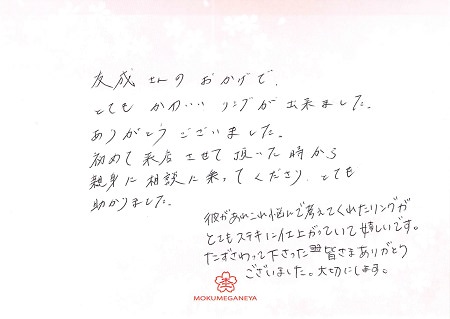 友成さんのおかげで、
とてもかわいいリングが出来ました。
ありがとうございました。
初めて来店させて頂いた時から
親身に相談に乗ってくださり、とても
助かりました。
彼があれこれ悩んで考えてくれたリングが
とてもステキに仕上がっていて嬉しいです。
たずさわって下さった皆さまありがとう
ございました。大切にします。
MOKUMEGANEYA